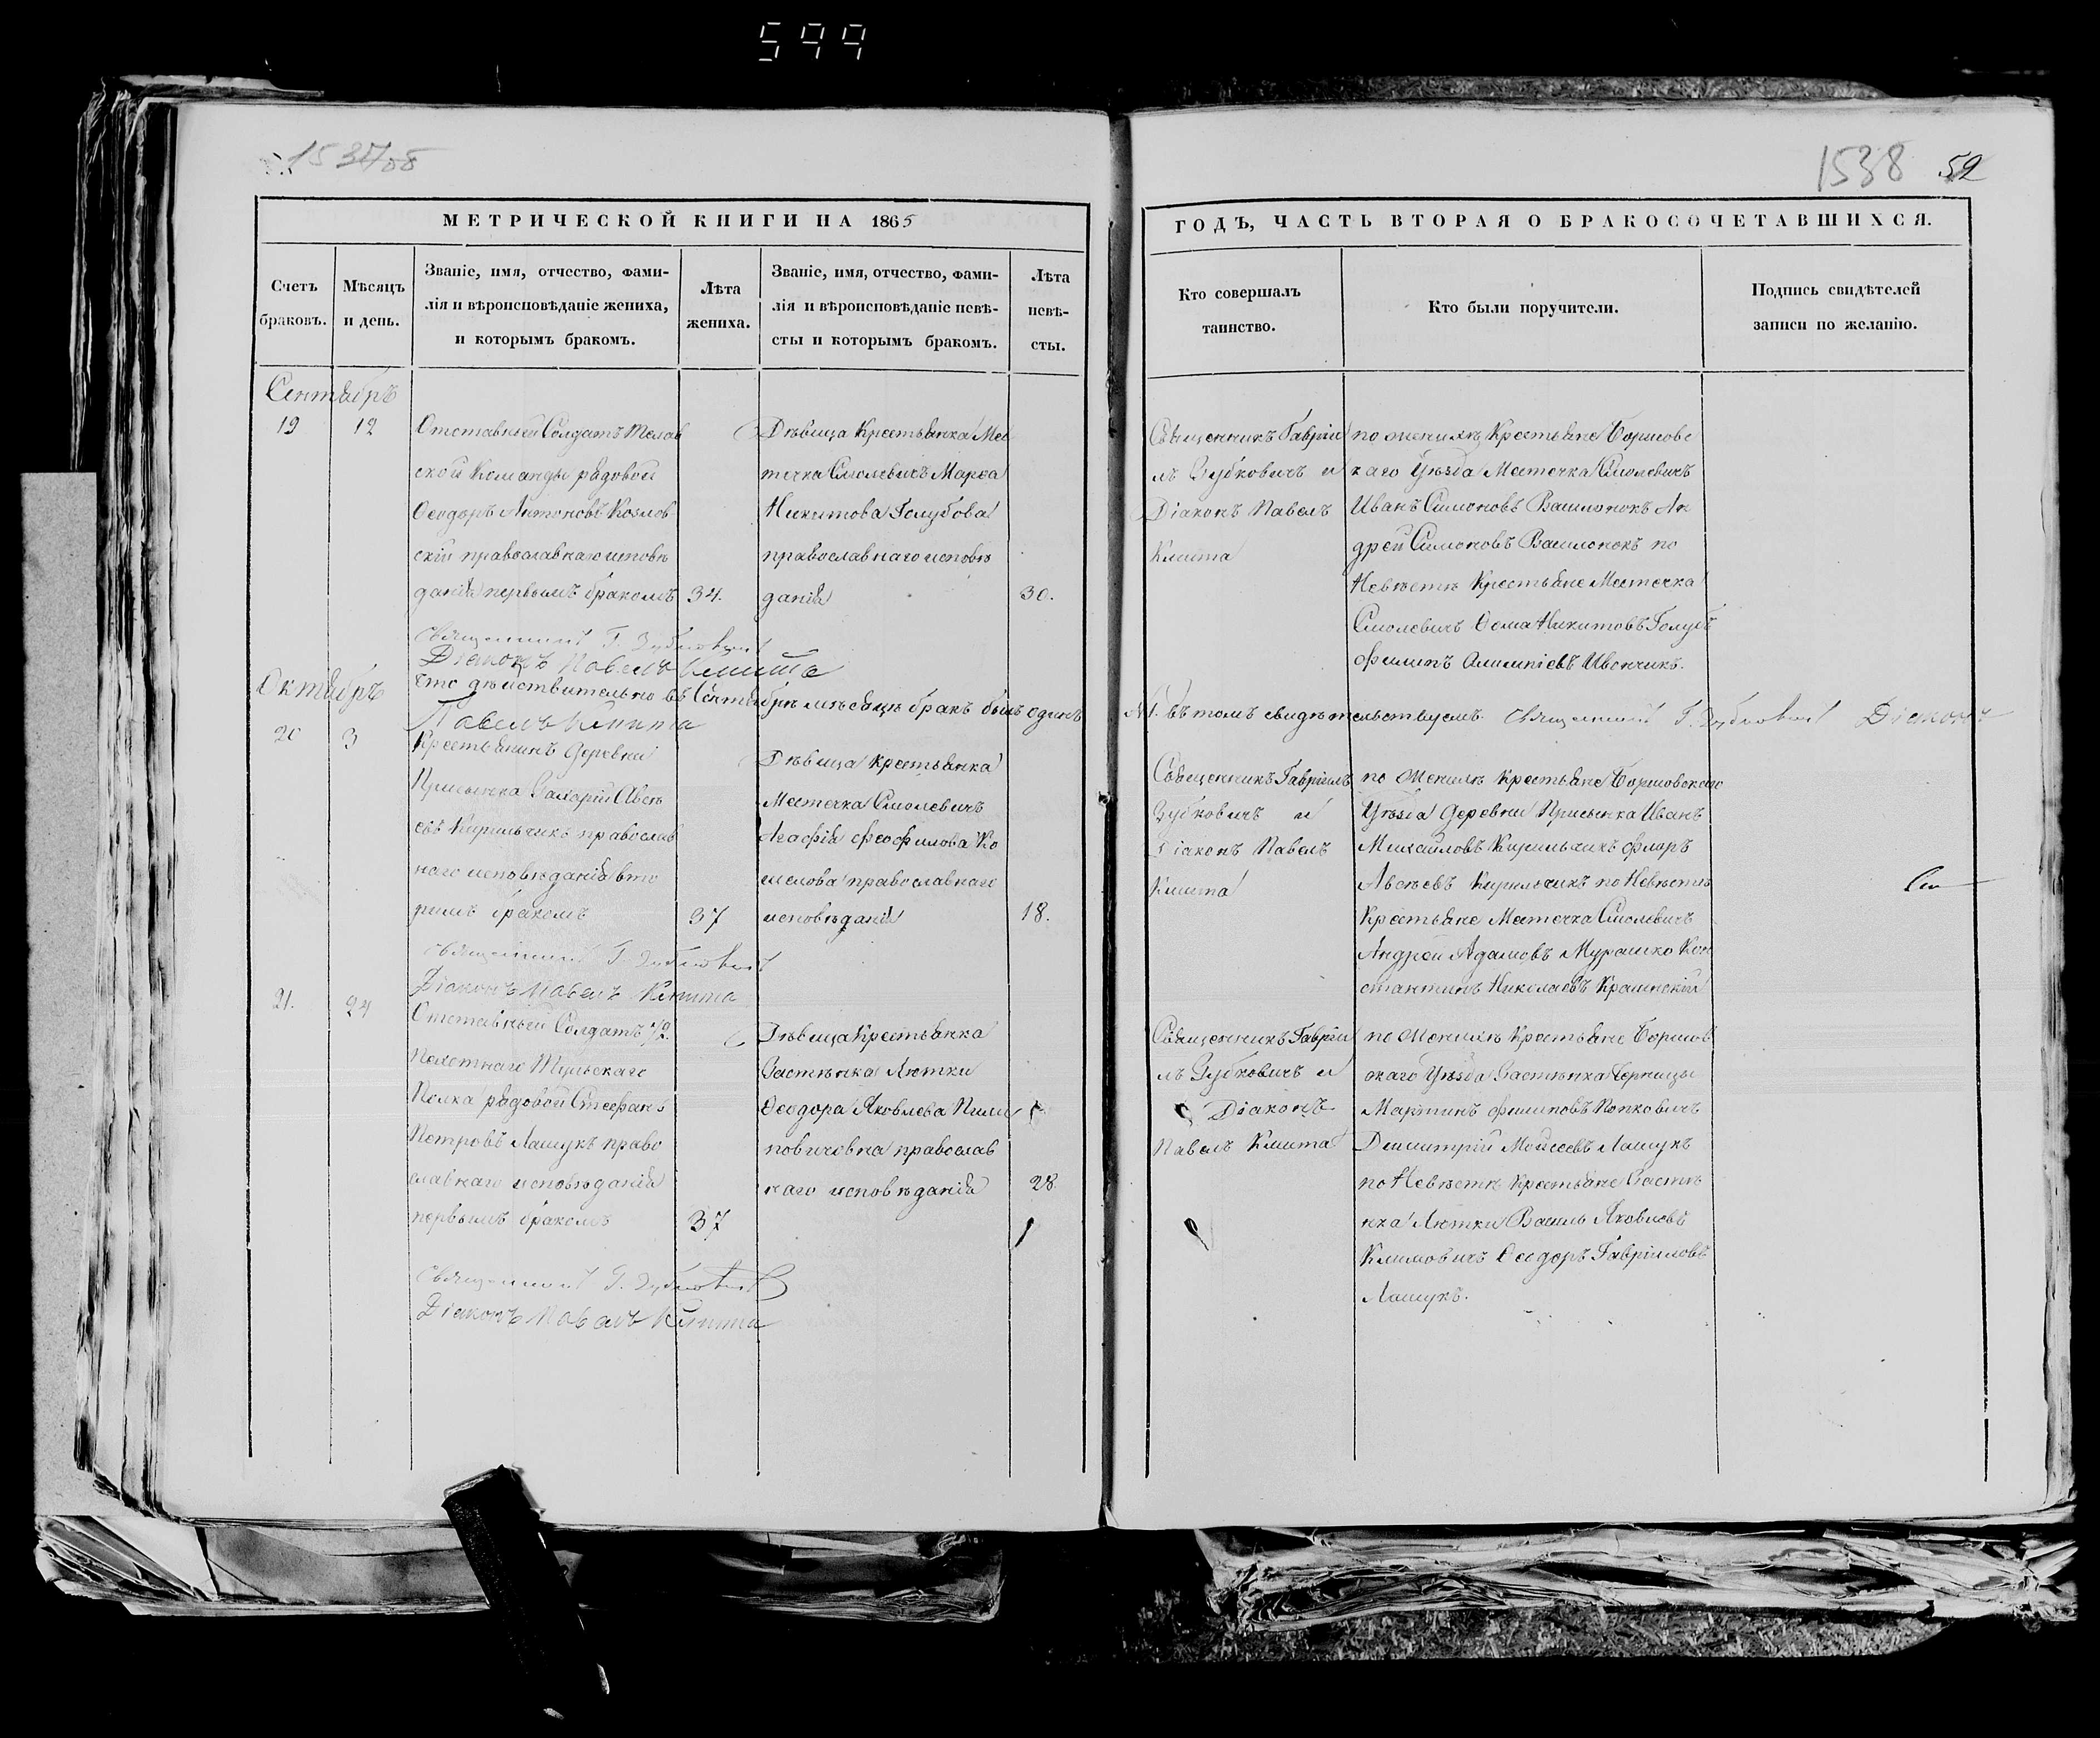 599
1538 52
МЕТРИЧЕСКОЙ КНИГИ НА 1865
ГОДЪ, ЧАСТЬ ВТОРАЯ О БРАКОСОЧЕТАВШИХСЯ.
Счетъ браковъ.
Мѣсяцъ и день.
Званіе, имя, отчество, фами-
лія и вѣроисповѣданіе жениха,
и которымъ бракомъ.
Лѣта
жениха.
Званіе, имя, отчество, фами-
лія и вѣроисповѣданіе невѣ-
сты и которымъ бракомъ.
Лѣта
невѣ-
сты.
Кто совершалъ
таинство.
Кто были поручители.
Подпись свидѣтелей
записи по желанію.
Сентябрь
19
12
Отставный Солдатъ
ской Команды рядовой
Ѳеодоръ Антоновъ Козлов
скій православнаго исповѣ
данія первымъ бракомъ
34.
Дѣвица Крестьянка Мес
течка Смолевичъ Марѳа
Никитова Голубова
православнаго исповѣ
данія
30.
Священникъ Гавріи
лъ Зубковичъ и
Діаконъ Павелъ
Кмита
по женихѣ Крестьяне Борисовс
каго Уѣзда Местечка Смолевичъ
Иванъ Симоновъ Василюнокъ Ан
дрей Симоновъ Василюнокъ по
Невѣстѣ Крестьяне Местечка
Смолевичъ Ѳома Никитовъ Голубъ
Филипъ Ивончикъ.
Священникъ Г. Зубковичъ
Діаконъ Павелъ Кмита
Что дѣйствительно въ Сентябрѣ мѣсяцѣ бракъ былъ одинъ
№ 1. въ томъ свидѣтельствуемъ. Священникъ Г. Зубковичъ Діаконъ
Павелъ Кмита
Октябрь
20
3
Крестьянинъ Деревни
Присынка Захарій Авсѣ
евъ Кирильчикъ православ
наго исповѣданія вто
рымъ бракомъ
37
Дѣвица Крестьянка
Местечка Смолевичъ
Агафія Феофилова Ко
православнаго
исповѣданія
18.
Священникъ Гавріилъ
Зубковичъ и
Діаконъ Павелъ
Кмита
по Женихѣ Крестьяне Борисовскаго
Уѣзда Деревни Присынка Иванъ
Михайловъ Кирильчикъ Флоръ
Авсѣевъ Кирильчикъ по Невѣстѣ
Крестьяне Местечка Смолевичъ
Андрей Адамовъ Мурашко Кон
стантинъ Николаевъ Крашнскій
Священникъ Г. Зубковичъ
Діаконъ Павелъ Кмита
21.
24
Отставный Солдатъ
Пехотнаго Тульскаго
Полка рядовой Стефанъ
Петровъ Лашукъ право
славнаго исповѣданія
первымъ бракомъ
37
Дѣвица Крестьянка
Застѣнка Лютки
Ѳеодора Яковлева Клим
повичовна православ
наго исповѣданія
28
Священникъ Гавріи
лъ Зубковичъ и
Діаконъ
Павелъ Кмита
по Женихѣ Крестьяне Борисов
скаго Уѣзда Застѣнка Черницы
Мартинъ Филиповъ Попковичъ
Димитрій Мойсеевъ Лашукъ
по Невѣстѣ Крестьяне Застѣ
нка Лютки Василь Яковлевъ
Климовичъ Ѳеодоръ Гавріиловъ
Лашукъ.
Священникъ Г. Зубковичъ
Діаконъ Павелъ Кмита